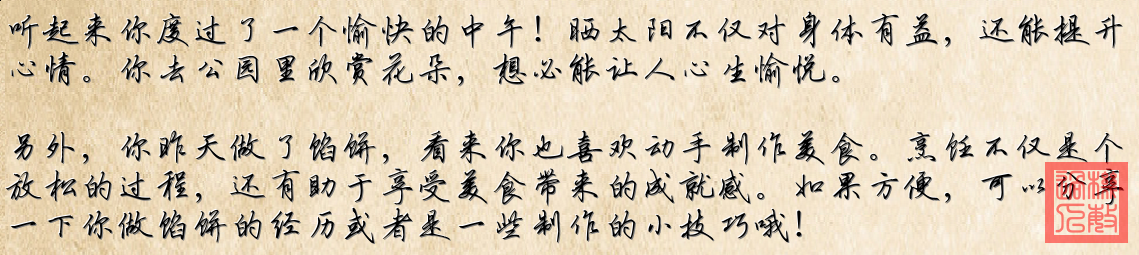 听起来你度过了一个愉快的中午！晒太阳不仅对身体有益，还能提升
心情。你去公园里欣赏花朵，想必能让人心生愉悦。
另外，你昨天做了馅饼，看来你也喜欢动手制作美食。烹饪不仅是个
放松的过程，还有助于享受美食带来的成就感。如果方便，可以分享
一下你做馅饼的经历或者是一些制作的小技巧哦！